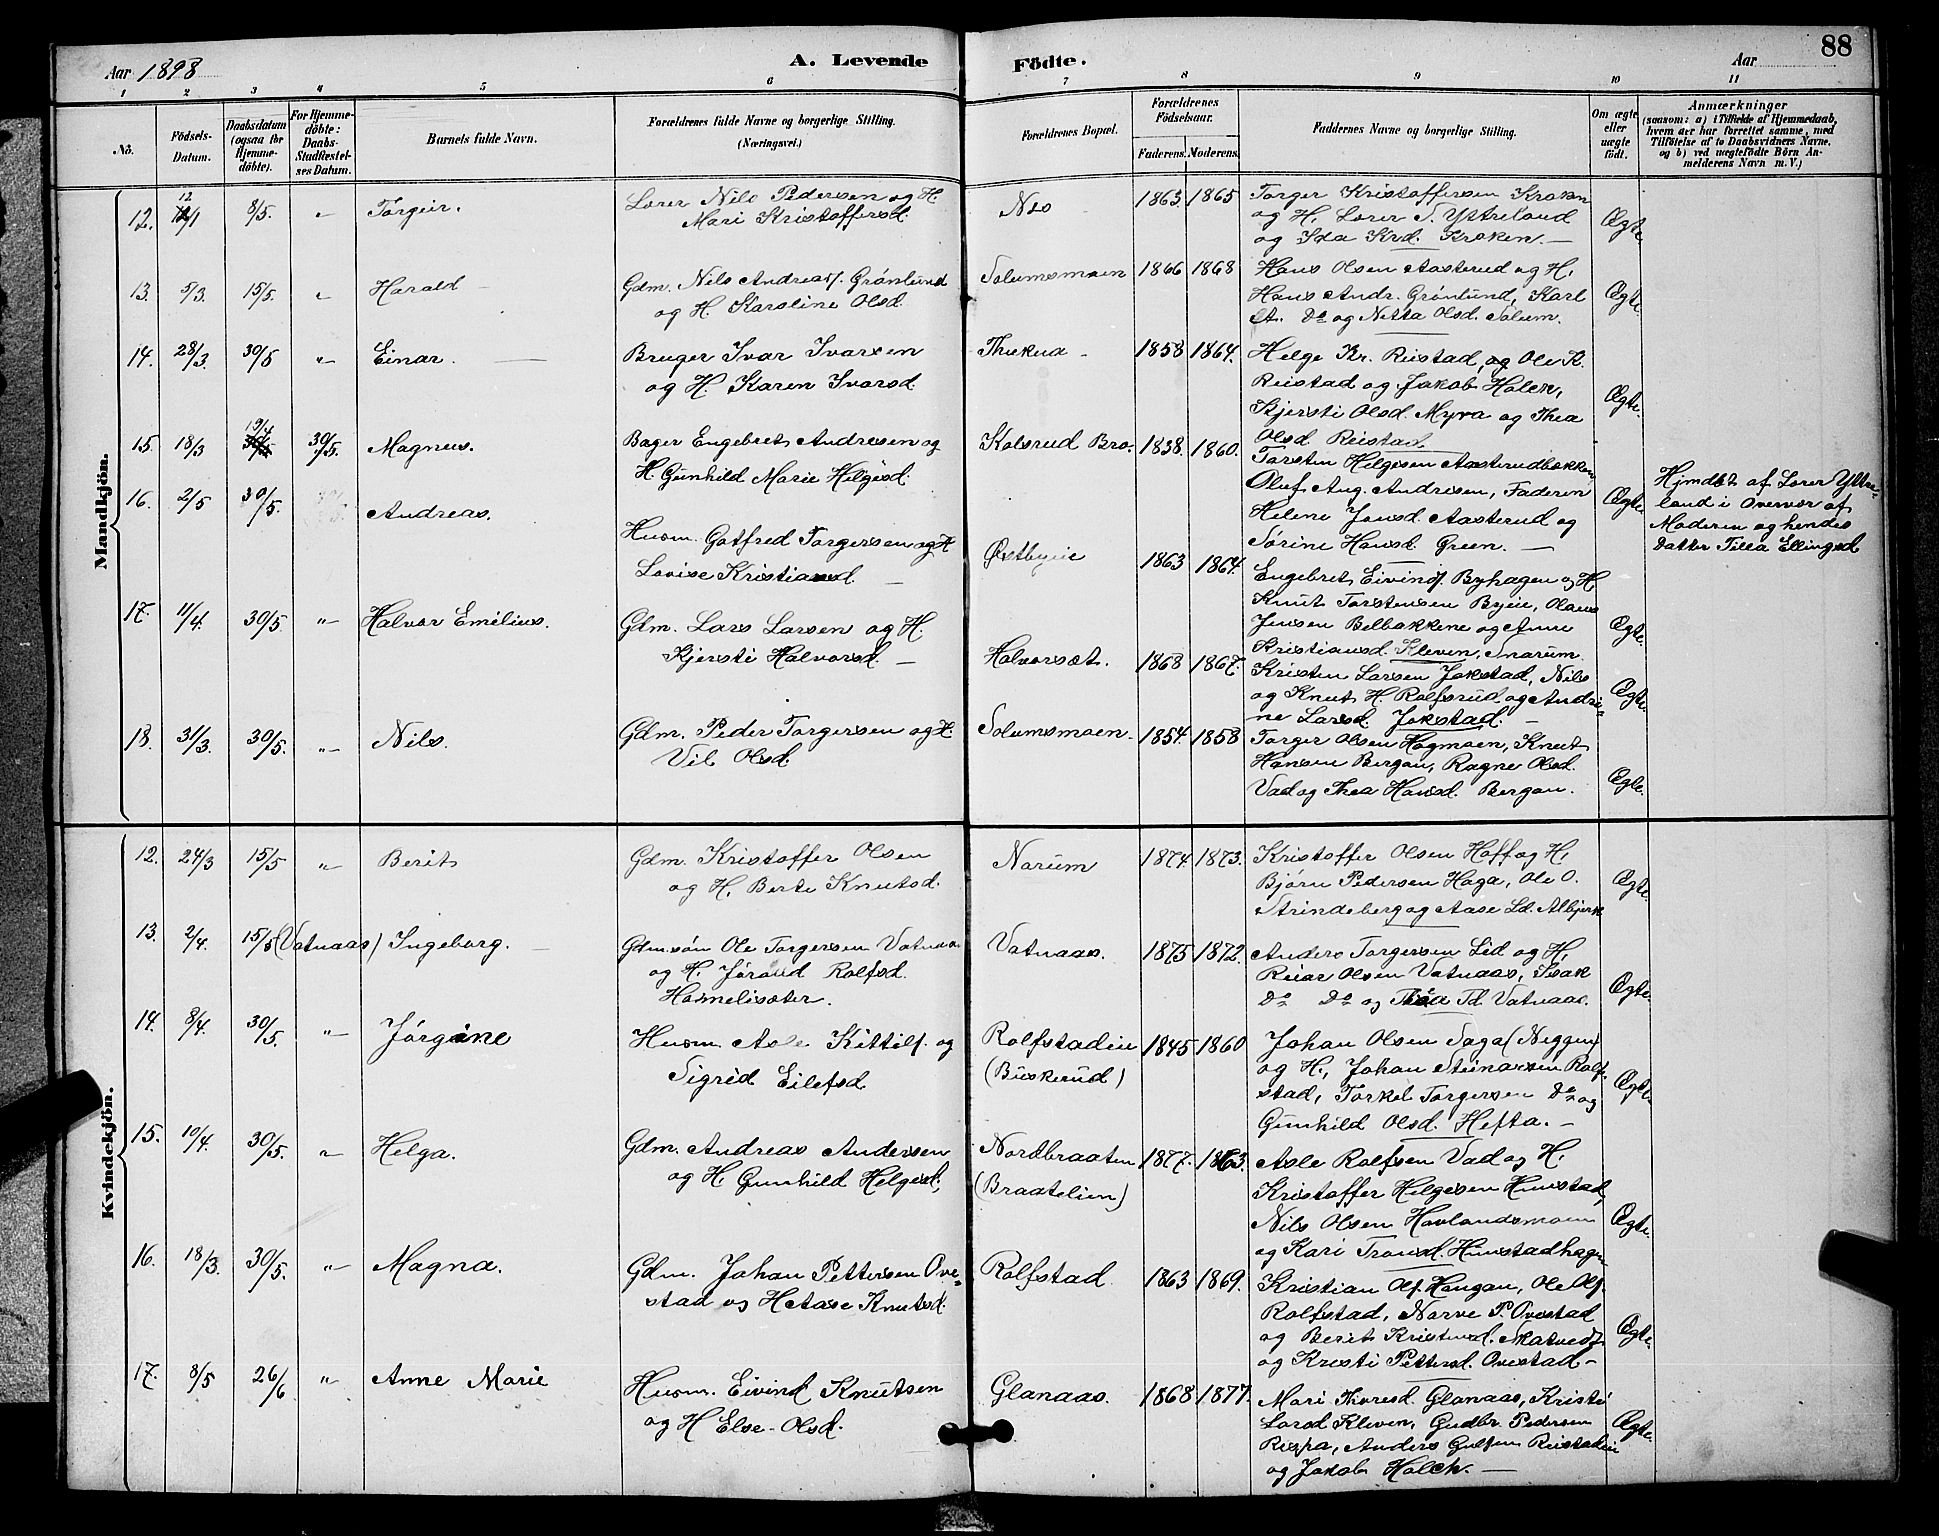 Aar 1898
A. Levende Födte.
Aar
88
1 2 3 4 5 6 7 8 9 10 11
No.
Födsels-Datum.
Daabsdatum (ogsaa for Hjemmedöbte).
For Hjemmedöbte: Daabs-Stadfæstelses Datum.
Barnets fulde Navn.
Forældrenes fulde Navne og borgerlige Stilling. (Næringsvei.)
Forældrenes Bopæl.
Forældrenes Födselsaar.
Faderens. Moderens.
Faddernes Navne og borgerlige Stilling.
Om ægte eller uægte födt.
Anmærkninger
(saasom: a) i Tilfælde af Hjemmedaab, hvem der har forrettet samme, med Tilföielse af to Daabsvidners Navne, og b) ved uægtefödte Börn Anmelderens Navn m. V.)
Mandkjön.
12. 12/1 8/5. „ Torgeir.
Lærer Nils Pedersen og H.
Mari Kristoffersd.
Nes 1863 1865
Torger Kristoffersen Kroken
og H, Lærer S. Ytreland
og Ida Krd. Kroken. —
Ægte
13. 5/3. 15/5. „ Harald —
Gdm. Nils Andreas. Grønlund
og H. Karoline Olsd.
Solumsmoen 1866 1868
Hans Olsen Aasterud og H,
Hans Andr. Grønlund, Karl
A. Do og Netta Olsd. Solum.
Ægte.
14. 28/3. 30/5 „ Einar. —
Bruger Ivar Ivarsen
og H. Karen Ivarsd.
1858 1864.
Helge Kr. Reistad, og Ole K.
Reistad og Jakob Holck,
Kjersti Olsd. Myra og Thea
Olsd. Reistad.
Ægte.
15. 18/3 19/4 30/5. Magnus.
Bager Engebret Andresen og
H. Gunhild Marie Helgesd.
Kolsrud Bro. 1838. 1860.
Torsten Helgesen Aasterudbakken
Oluf Aug. Andresen, Faderen
Helene Jonsd. Aasterud og
Sørine Hansd. Green. —
Ægte.
Hjmdbt af Lærer Yttre-
land i Overvær af
Moderen og hendes
Datter Tilla Ellingsd
16. 2/5 30/5. Andreas.
Husm. Gotfred Torgersen og H
Lovise Kristiansd. —
Østbyeie 1863 1864.
Engebret Eivinds. Byhagen og H
Knut Torstensen Byeie, Olaus
Jensen Belbakkene og Anne
Kristiansd. Kleven, Snarum.
Ægte.
17. 11/4. 30/5. „ Halvor Emilius.
Gdm. Lars Larsen og H.
Kjersti Halvorsd. —
Halvorsæt. 1868 1867.
Kristen Larsen Jokstad, Nils
og Knut H. Rolfsrud og Andri-
ne Larsd. Jokstad. —
Ægte.
18. 31/3. 30/5. „ Nils.
Gdm. Peder Torgersen og H.
Vil Olsd.
Solumsmoen. 1854. 1858
Torger Olsen Hagmoen, Knut
Hansen Bergan, Ragne Olsd.
Vad og Thea Hansd. Bergan.
Ægte.
Kvindekjön.
12. 24/3 15/5 „ Berit
Gdm. Kristoffer Olsen
og H. Berte Knutsd.
Norum 1874. 1873.
Kristoffer Olsen Hoff og H,
Bjørn Pedersen Haga, Ole O.
Strindeberg og Aase Ld. Albjerk
Ægte.
13. 2/4. 15/5 (Vatnaas) Ingeborg. —
Gdm.søn Ole Torgersen Vatnaas
og H. Jørand Rolfsd.
Hamelisæter.
Vatnaas. 1875 1872.
Anders Torgersen Lid og H,
Reiar Olsen Vatnaas, Isak
Do Do og Thea Td. Vatnaas.
Ægte.
14. 8/4. 30/5. „ Jørgine
Husm. Asle Kittils. og
Sigrid Eilefsd.
Rolfstadeie
(Buskerud) 1845 1860
Johan Olsen Saga (Neggen)
og H, Johan Steinarsen Rolf-
stad, Torkel Torgersen Do og
Gunhild Olsd. Hefta. —
Ægte.
15. 10/4. 30/5. „ Helga.
Gdm. Andreas Andersen
og H. Gunhild Helgesd.
Nordbraaten
(Braatelien) 1877. 1863.
Asle Rolfsen Vad og H.
Kristoffer Helgesen Hunstad,
Nils Olsen Hovlandsmoen
og Kari Tronsd. Hunstadhagen
Ægte.
16. 18/3. 30/5. „ Magna.
Gdm. Johan Pettersen Ove-
stad og H Aase Knutsd.
Rolfstad 1863 1869.
Kristian Ols. Haugan, Ole Ols.
Rolfstad, Narve P. Ovestad
og Berit Kristensd. Skatvedt
og Kristi Pettersd. Ovestad —
Ægte.
17. 8/5 26/6 „ Anne Marie
Husm. Eivind Knutsen
og H Else Olsd.
Glanaas. 1868 1877.
Mari Thoresd. Glanaas, Kristi
Larsd Kleven, Gudbr. Pedersen
Anders Gulsen Reistadeie
og Jakob Holck. —
Ægte.